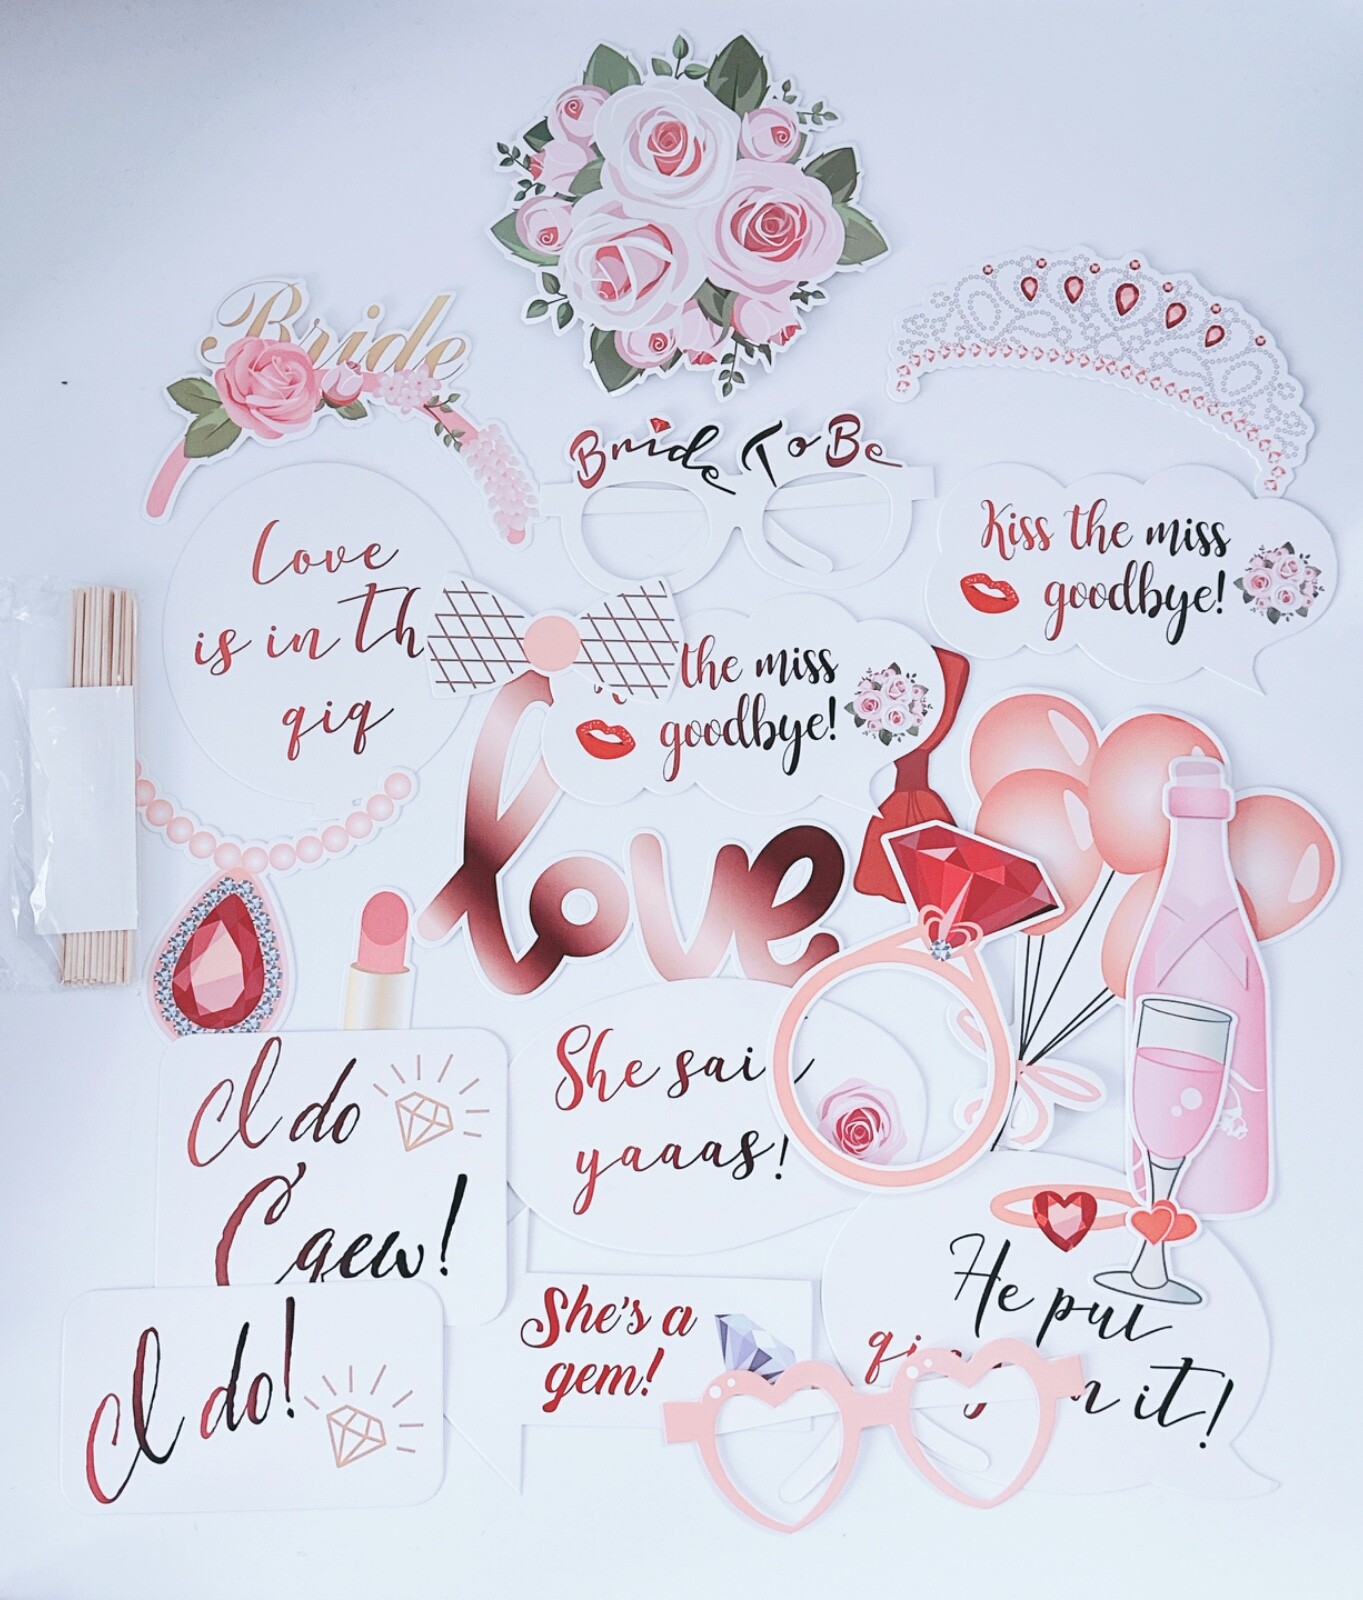 Bride
Bride To Be
Love
is in th
qiq
Kiss the miss
goodbye!
the miss
goodbye!
love
I do
Cqew!
She sai
yaaas!
She's a
gem!
He put
n it!
I do!